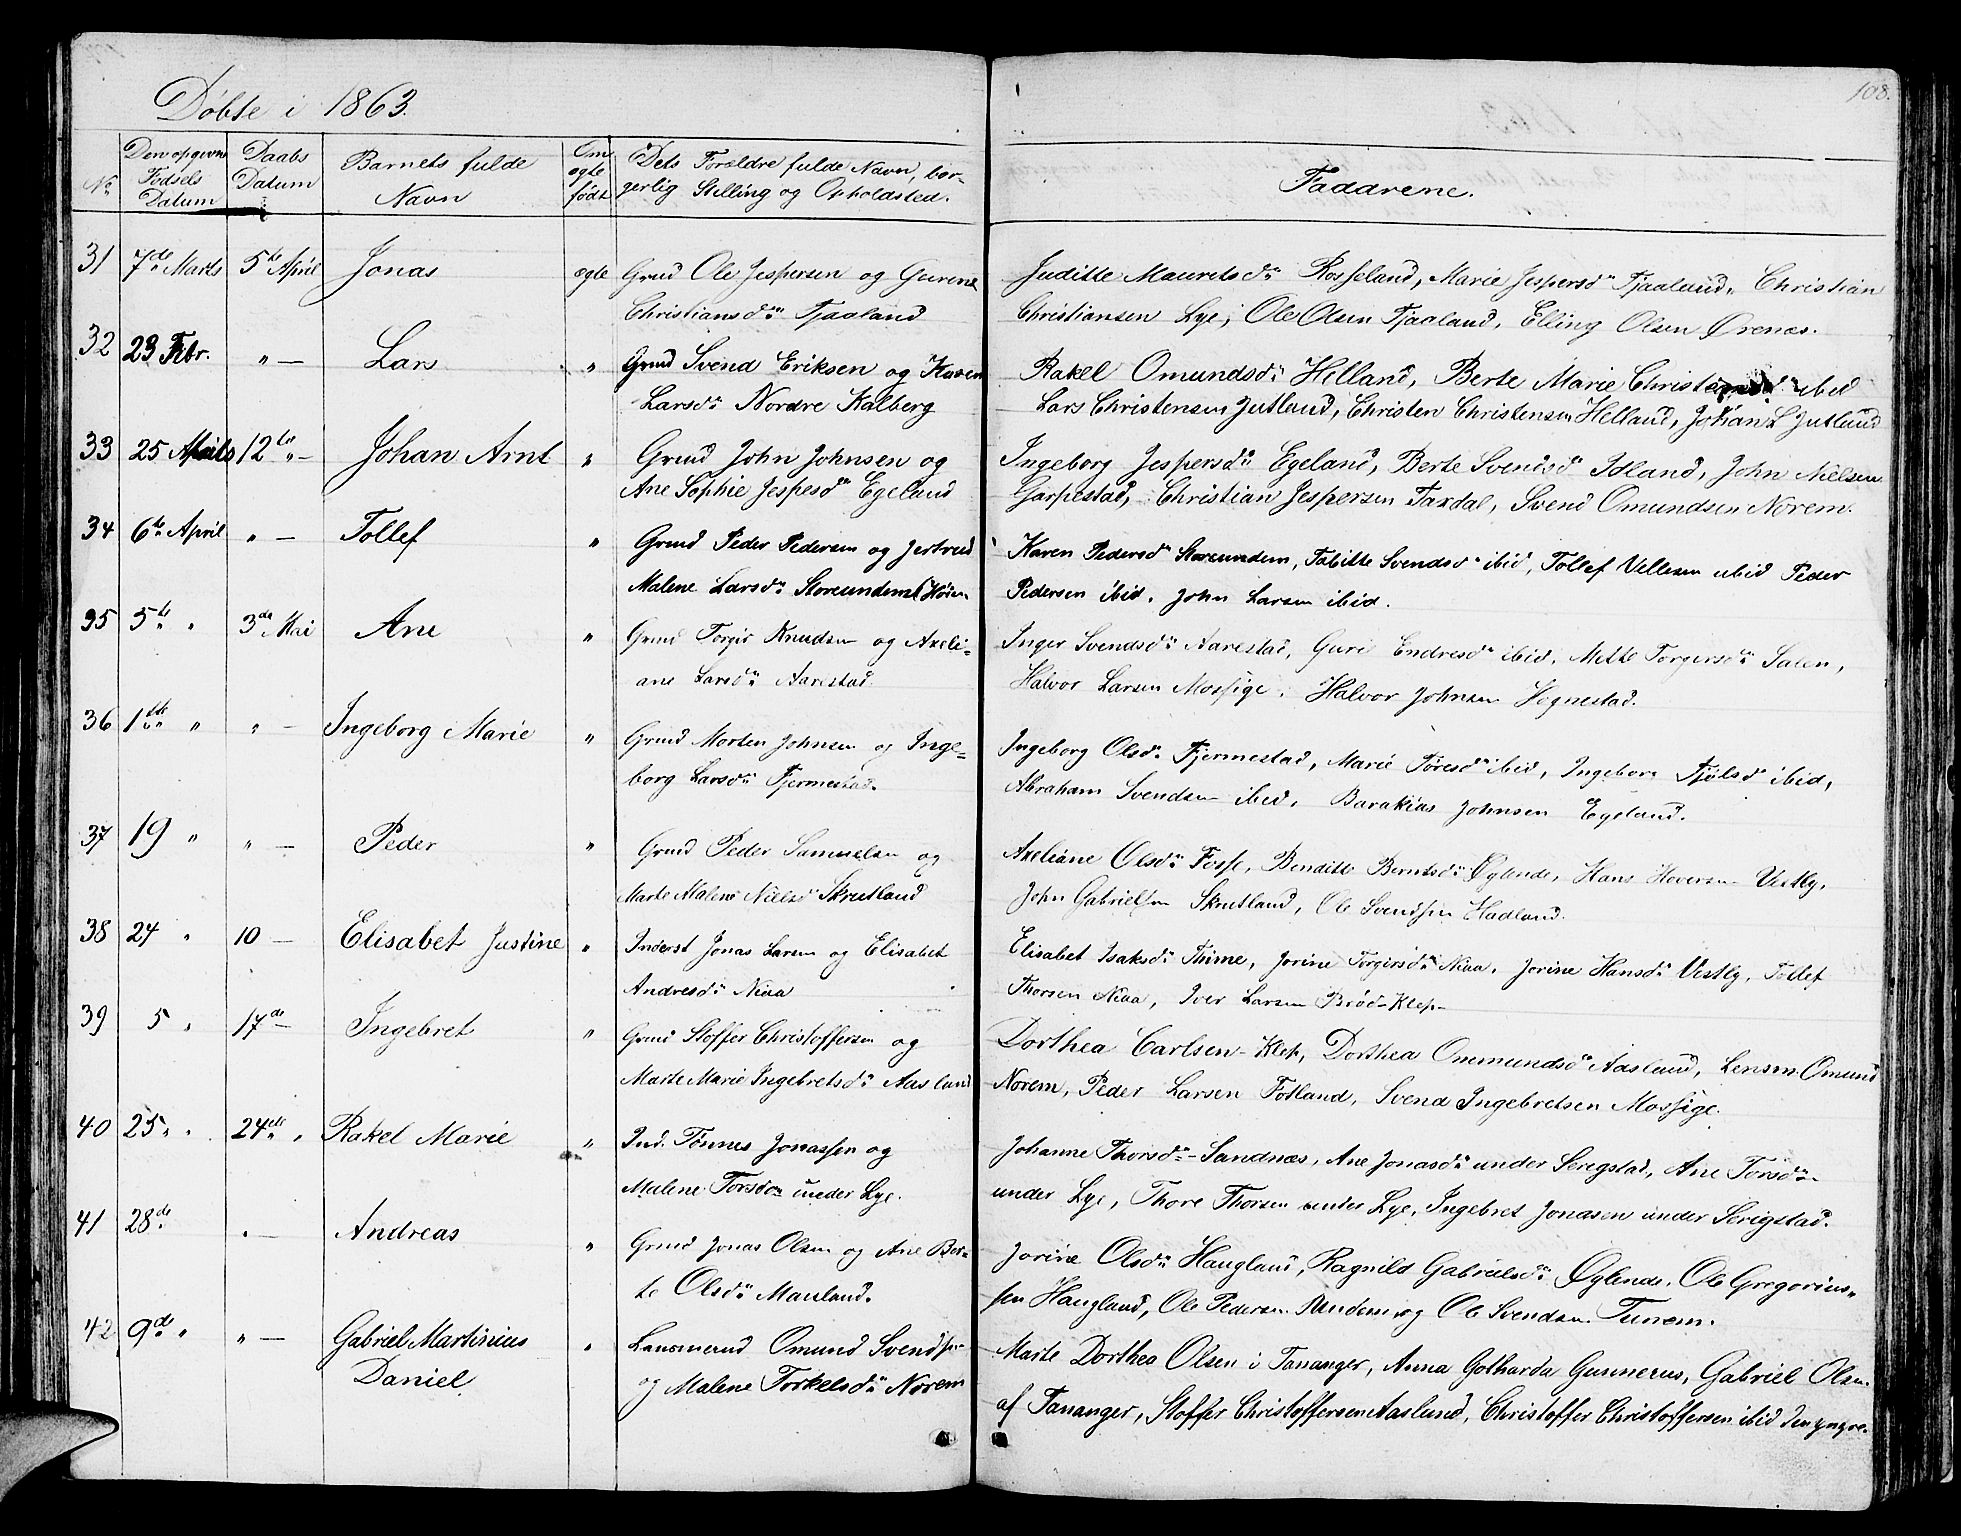 108.
Döbte i 1863.
No
Den opgivne Födsels Datum
Daabs Datum
Barnets fulde Navn
Om ægte födt
Dets Forældre fulde Navn, bor-
gerlig Stilling og Opholdsted.
Faddrene.
31 7de Marts 5te April Jonas ægte Grmd Ole Jespersen og Gurene
Christiansdr Tjaaland
Juditte Mauritsdr Rosseland, Marie Jespersdr Tjaaland, Christian
Christiansen Lye, Ole Olsen Tjaaland, Elling Olsen Örenæs.
32 23 Febr. " — Lars " Grmd Svend Eriksen og Karen
Larsdr Nordre Kalberg
Rakel Omundsdr Helland, Berte Marie ibid
Lars Christensen Jutland, Christen Christensen Helland, Johan L Jutland
33 25 12te " — Johan Arnt " Grmd John Johnsen og
Ane Sophie Jespesdr Egeland
Ingeborg Jespersdr Egeland, Berte Svendsdr Idland, John Nielsen
Garpestad, Christian Jespersen Taxdal, Svend Omundsen Norem.
34 6te April " — Tollef " Grmd Peder Pedersen og Jertrud
Malene Larsdr Storeundem
Karen Pedersdr Storeundem, Tabitte Svendsdr ibid, Tollef Villesen ibid Peder
Pedersen ibid. John Larsen ibid.
35 5te " 3de Mai Ane " Grmd Torgir Knudsen og Axeli-
ane Larsdr Aarestad.
Inger Svendsdr Aarestad, Guri Endresdr ibid, Mette Torgersdr Salen,
Halvor Larsen Mossige. Halvor Johnsen Hognestad.
36 1ste " " — Ingeborg Marie " Grmd Morten Johnsen og Inge-
borg Larsdr Fjermestad.
Ingeborg Olsdr Fjermestad, Marie Töresdr ibid, Ingeborg Fjölsd ibid,
Abraham Svendsen ibid, Barakias Johnsen Egeland.
37 19 " " — Peder " Grmd Peder Samuelsen og
Marte Malene Nielsd Skrutland
Axeliane Olsdr Fosse, Benditte Berntsdr Öglende, Hans Hoversen Vestly,
John Gabrielsen Skrutland, Ole Svendsen Hadland.
38 24 " 10 — Elisabet Justine " Inderst Jonas Larsen og Elisabet
Andresdr Niaa
Elisabet Isaksdr Thime, Jorine Torgirsdr Niaa, Jorine Hansdr Vestly, Tollef
Thorsen Niaa, Iver Larsen Bröd-Klep.
39 5 " 17de — Ingebret " Grmd Stoffer Christoffersen og
Marte Marie Ingebretsdr Aasland
Dorthea Carlsen-Klep, Dorthea Ommundsdr Aasland, Lensm. Omund
Norem, Peder Larsen Fotland, Svend Ingebretsen Mossige.
40 25 " " 24de " Rakel Marie " Ind. Tönnes Jonassen og
Malene Torsdr under Lye.
Johanne Thorsdr Sandnæs, Ane Jonasdr under Serigstad, Ane Torsdr
under Lye, Thore Thorsen under Lye, Ingebret Jonasen under Serigstad.
41 28de " — Andreas " Grmd Jonas Olsen og Ane Ber-
te Olsdr Mauland.
Jorine Olsdr Haugland, Ragnild Gabrielsdr Öglende, Ole Gregorius-
sen Haugland, Ole Pedersen Undem og Ole Svendsen Tunem.
42 9de " " — Gabriel Martinius " Lensmand Omund Svendsen
Daniel og Malene Torkelsdr Norem
Marte Dorthea Olsen i Tananger, Anna Gotharda Gunnerus, Gabriel Olsen
af Tananger, Stoffer Christoffersen Aasland, Christoffer Christoffersen ibid den yngre.